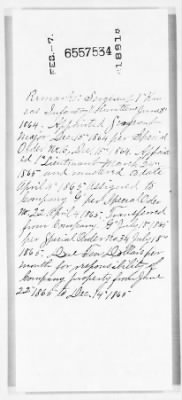 FEB.-7.
6557534
1891
Remarks: Sergeant 1st Kan-
sas Infantry
1864. Appointed Sergeant
Major Dec. 15" 1864 per Special
Order No. 6, Dec. 15" 1864. Appoint-
ed 1st Lieutenant March
1865 and mustered as
April 5" 1865 assigned to
Company G per Special Order
No. 22 April 4, 1865. Transferred
from Company G July 18" 1865
per Special Order No. 34 July 18"
1865. Due Ten Dollars per
month for responsibility of
Company property from June
22" 1865 to Dec. 14" 1865